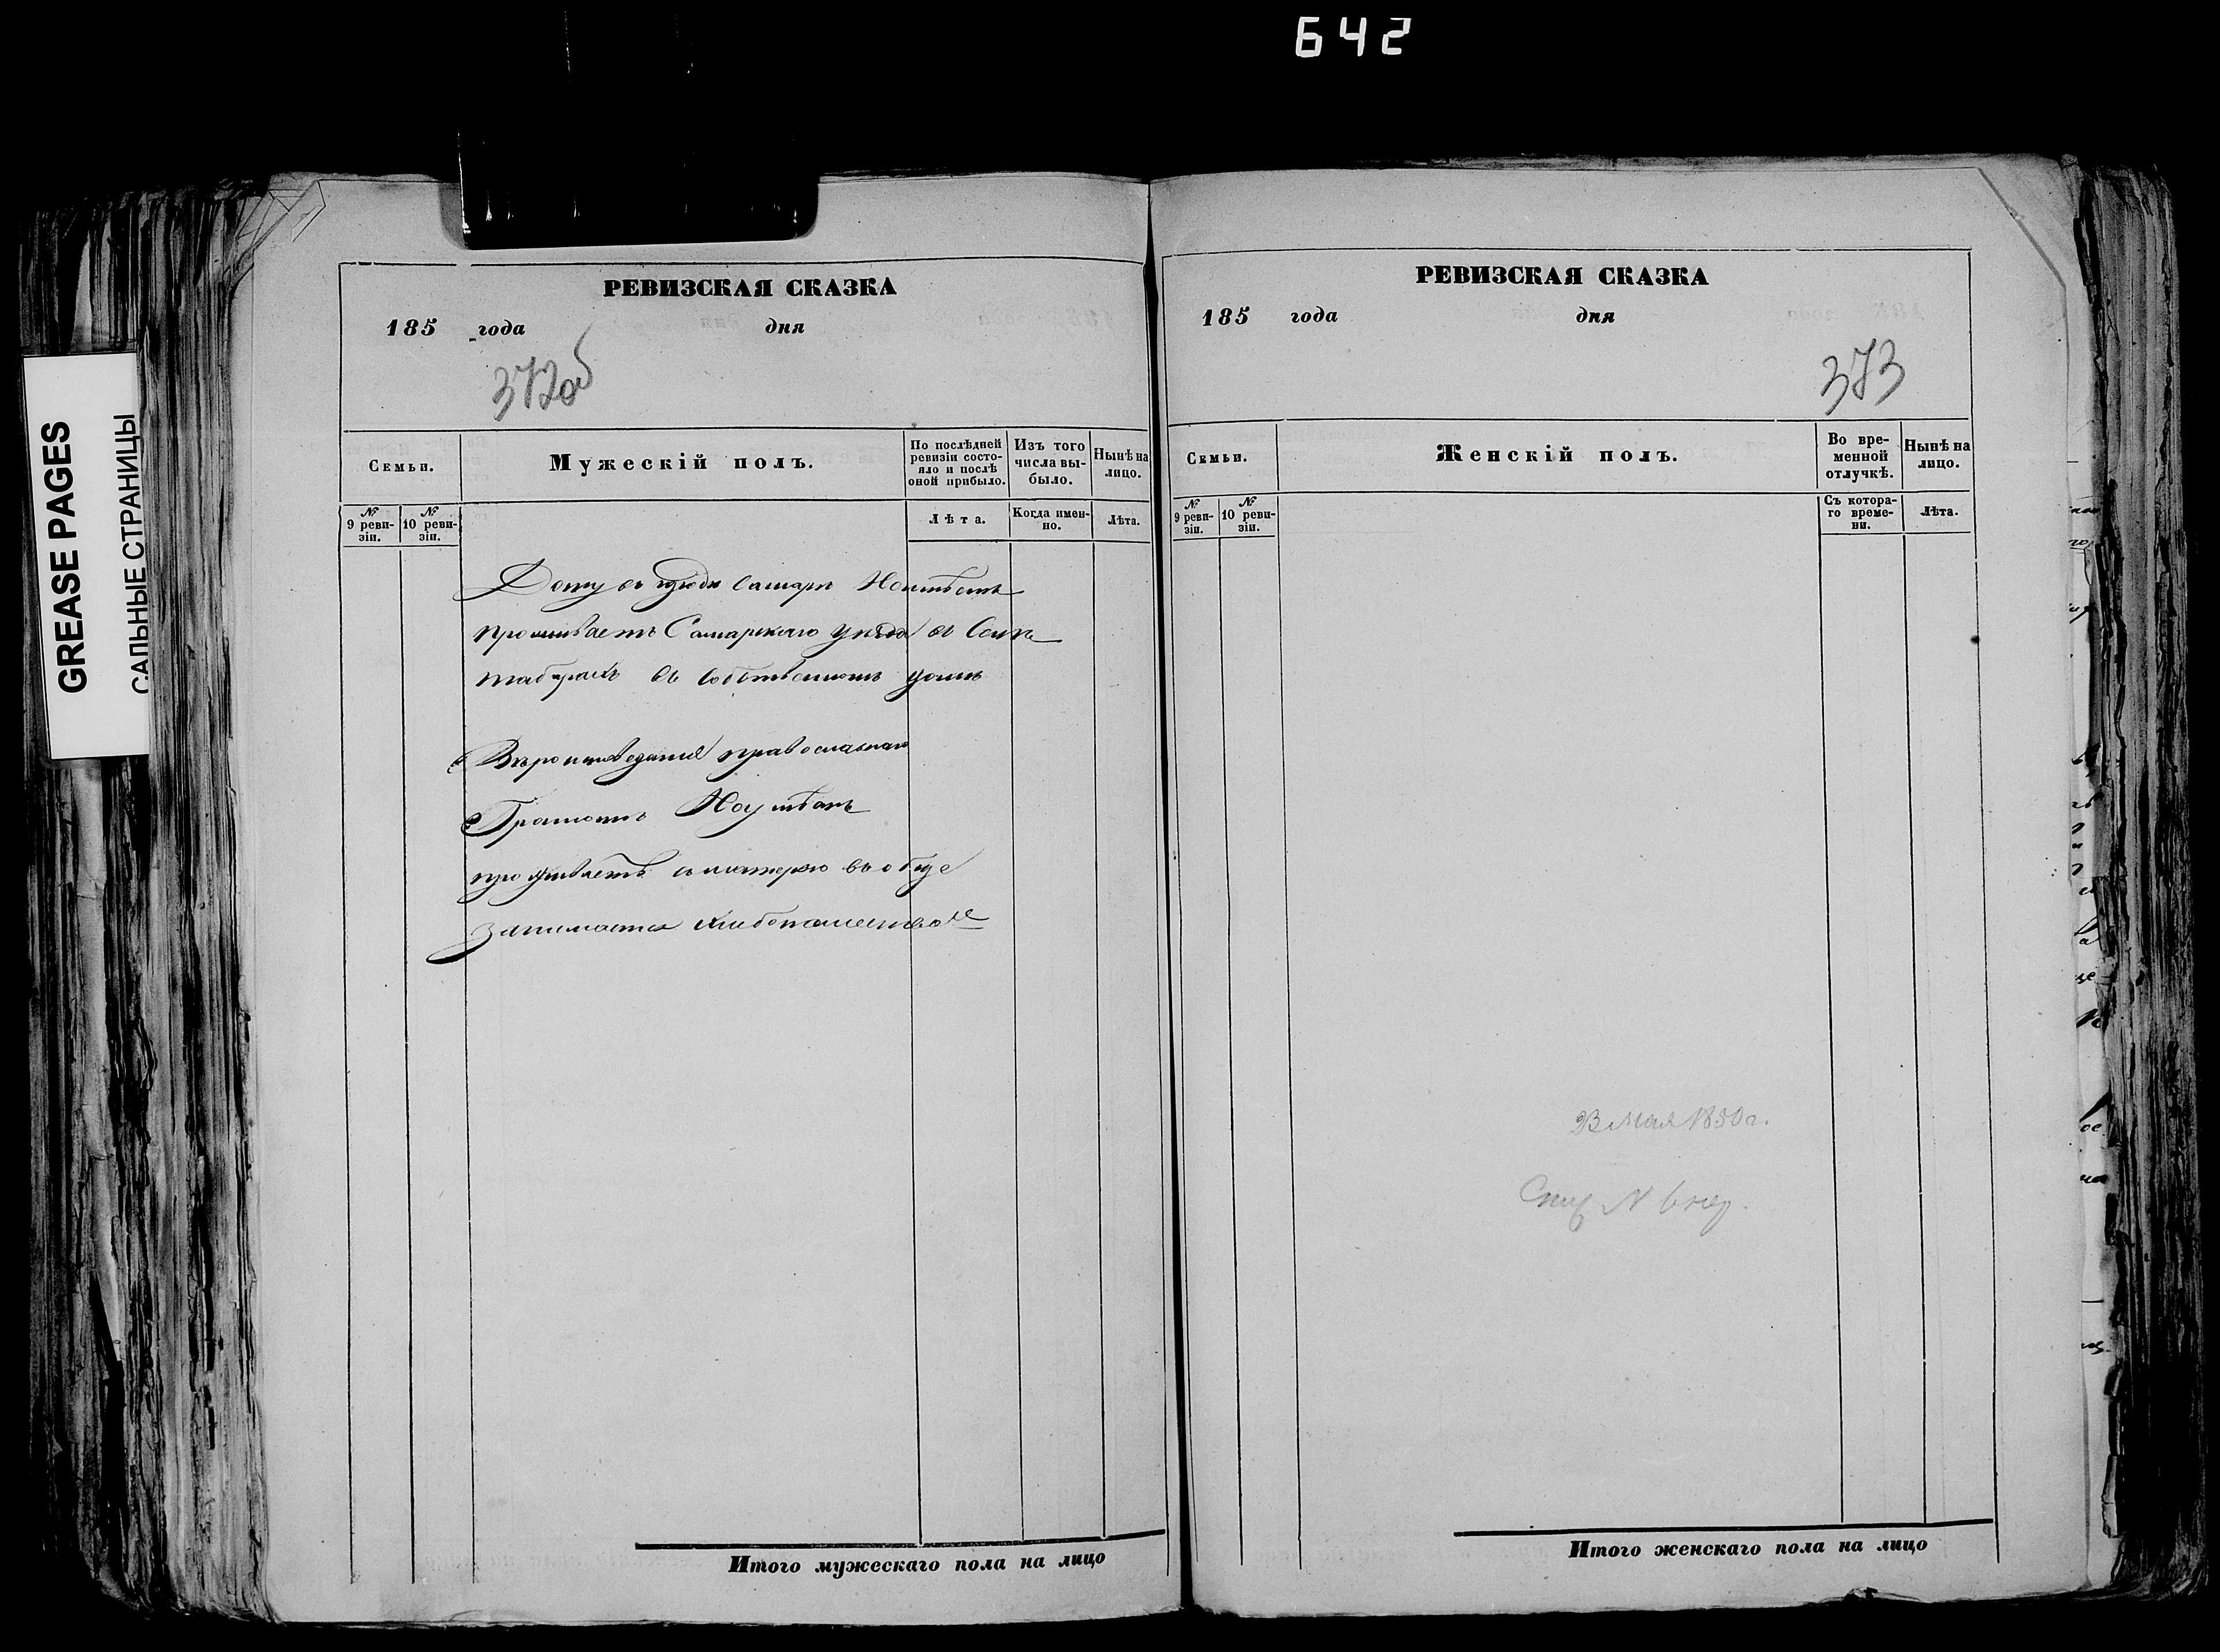 642
GREASE PAGES
САЛЬНЫЕ СТРАНИЦЫ
РЕВИЗСКАЯ СКАЗКА
185 года дня
372об
Семьи.
Мужескій полъ.
По послѣдней ревизіи состояло и послѣ оной прибыло.
Изъ того числа выбыло.
Нынѣ на лицо.
№ 9 ревизіи.
№ 10 ревизіи.
Лѣта.
Когда именно.
Лѣта.
Дому въ городѣ Самарѣ Неимѣетъ
проживаетъ Самарскаго уѣзда въ Селѣ
въ собственномъ домѣ
Вѣроисповеданія православнаго
Грамотѣ
проживаетъ с матерью вобще
Занимается хлебопашеством
РЕВИЗСКАЯ СКАЗКА
185 года дня
373
Семьи.
Женскій полъ.
Во временной отлучкѣ.
Нынѣ на лицо.
№ 9 ревизіи.
№ 10 ревизіи.
Съ котораго времени.
Лѣта.
мая 1850 г.
Итого мужескаго пола на лицо
Итого женскаго пола на лицо